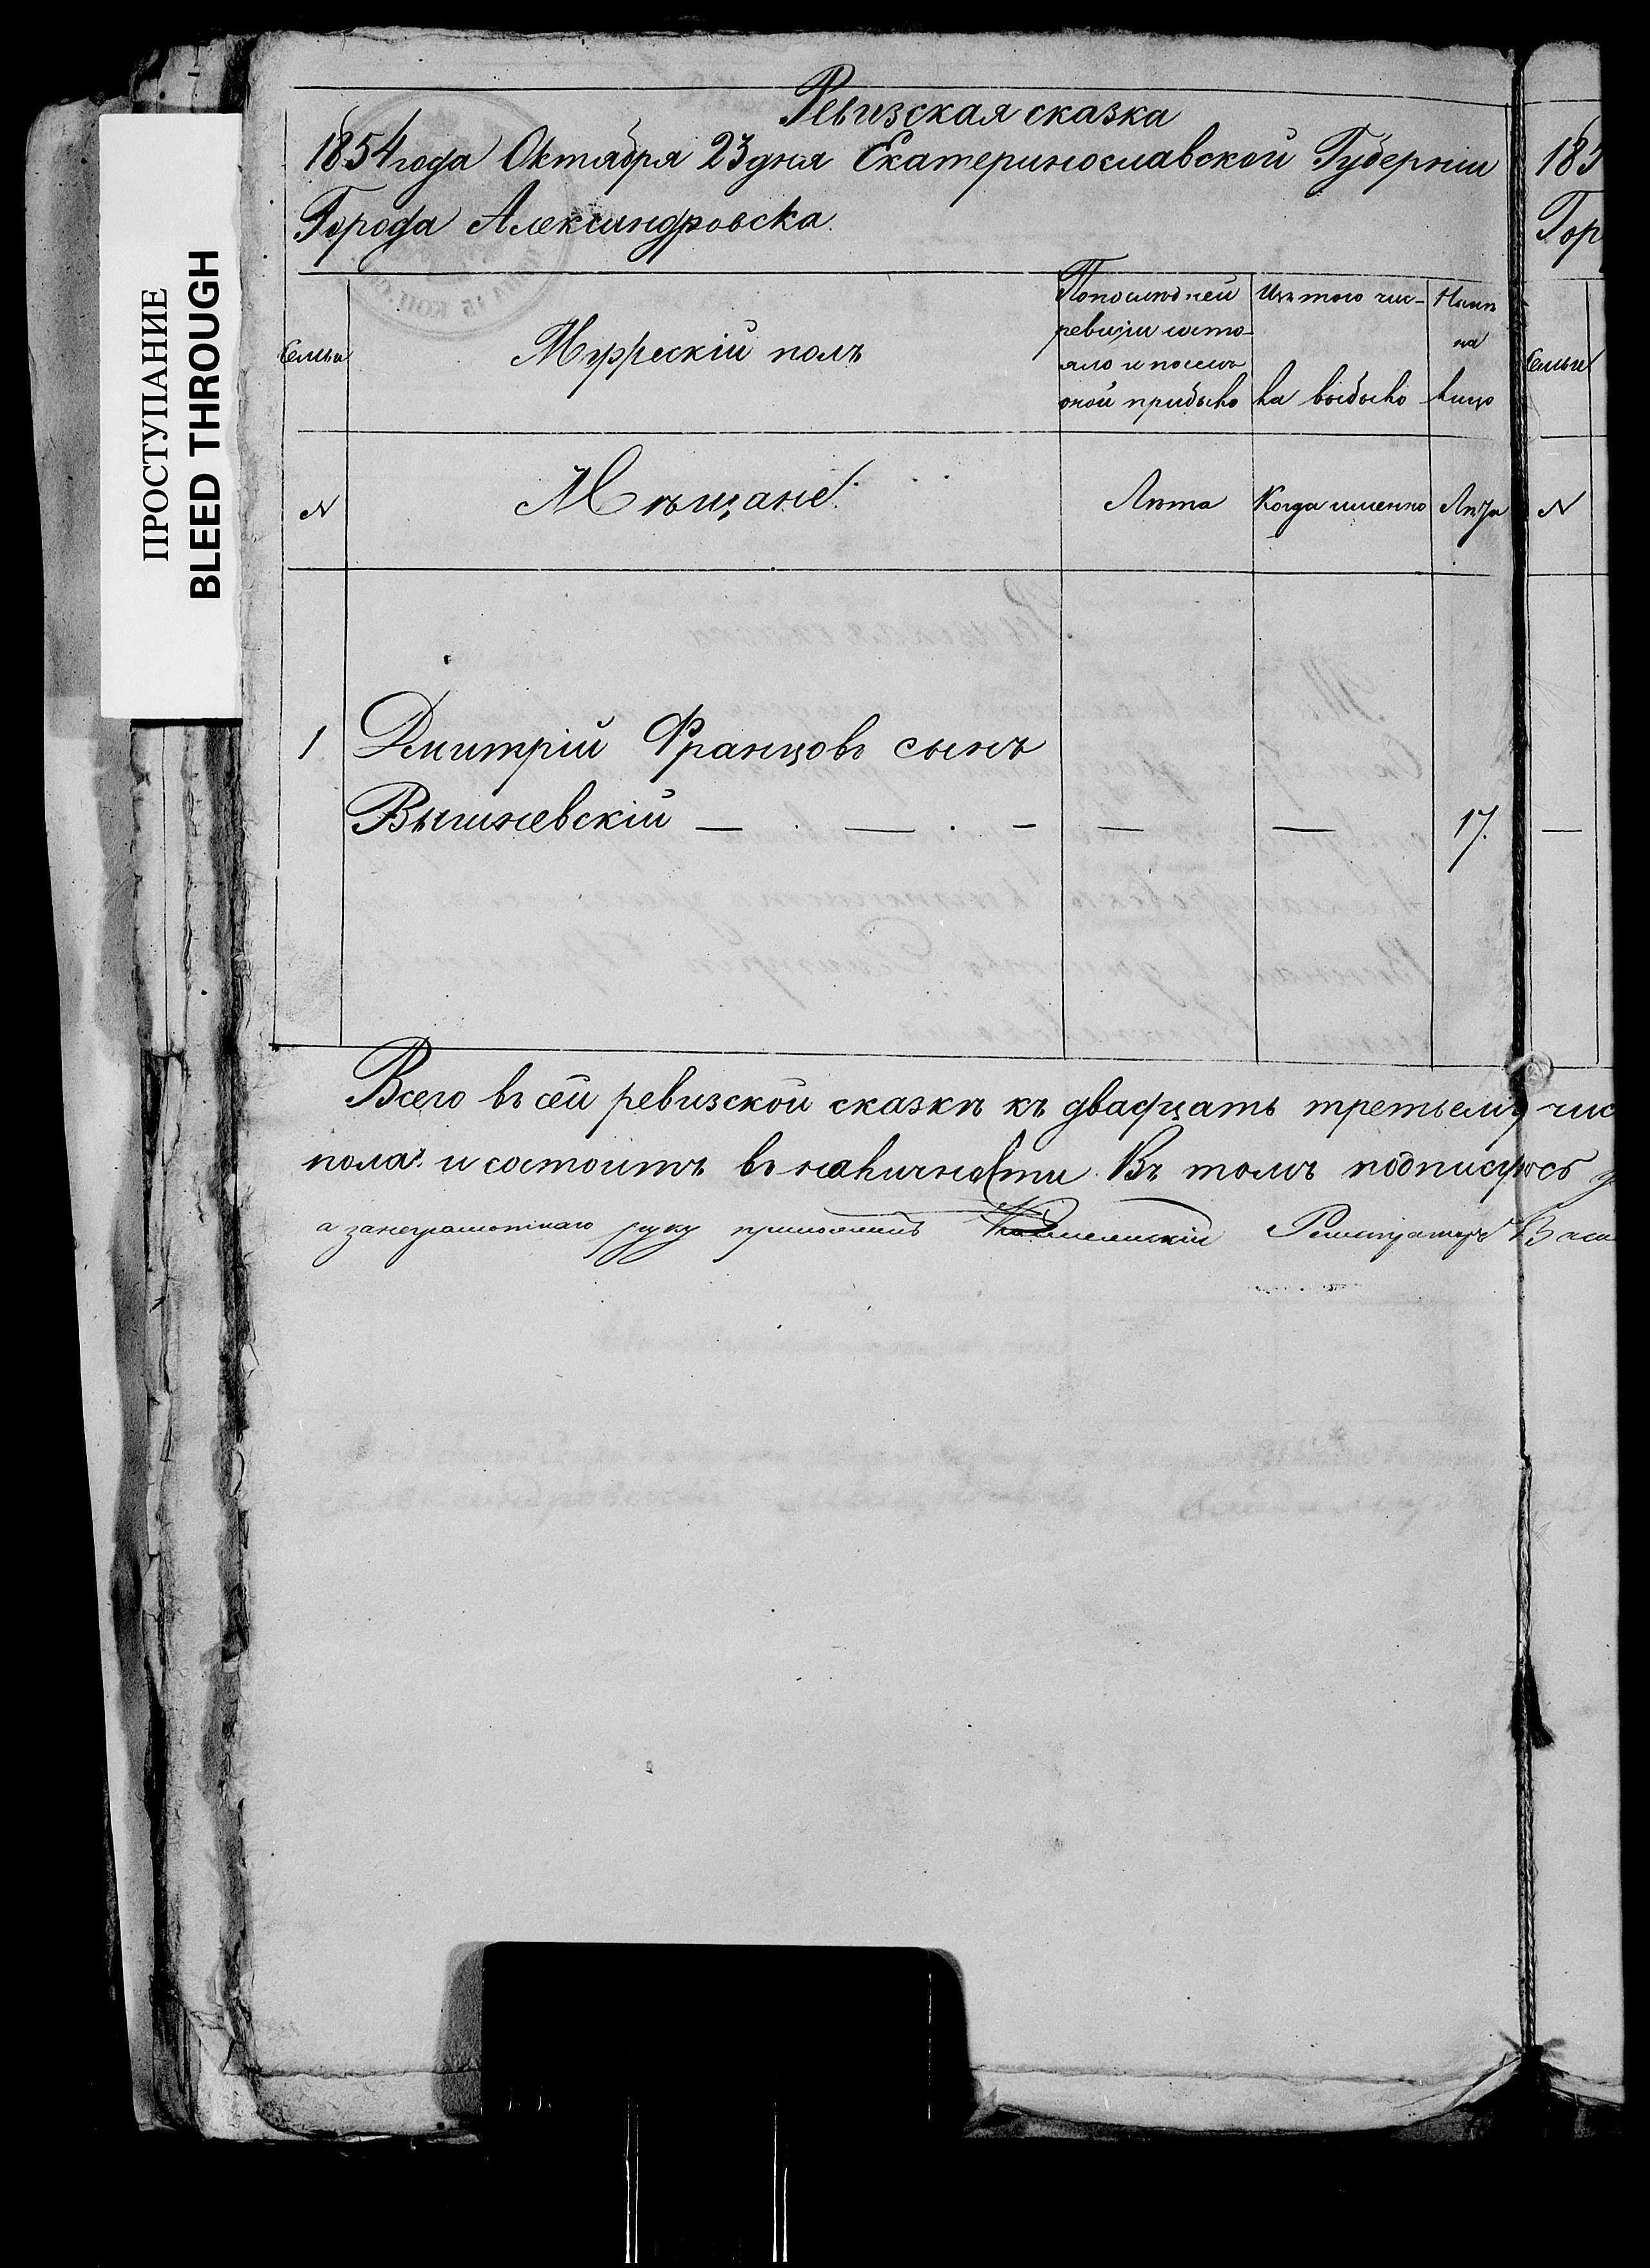 ПРОСТУПАНИЕ
BLEED THROUGH
Ревизская сказка
1854 года Октября 23 дня Екатеринославской Губерніи
Города Александровска.
Семьи
Мужескій полъ
По последней
ревизіи состо-
яло и после
оной прибыло
Изъ того чис-
ла выбыло
Нынѣ
на
лицо
N
Мѣщане.
Лѣта
Когда именно
Лѣта
1
Дмитрій Францовъ сынъ
Вышневскій — . — . – — — 17.
Всего въ сей ревизской сказкѣ къ двадцать третьему чис
пола и состоитъ въ наличности. Въ томъ подписуюсь
а занеграмотнаго руку приложилъ
183
Гор
Семьи
N
—